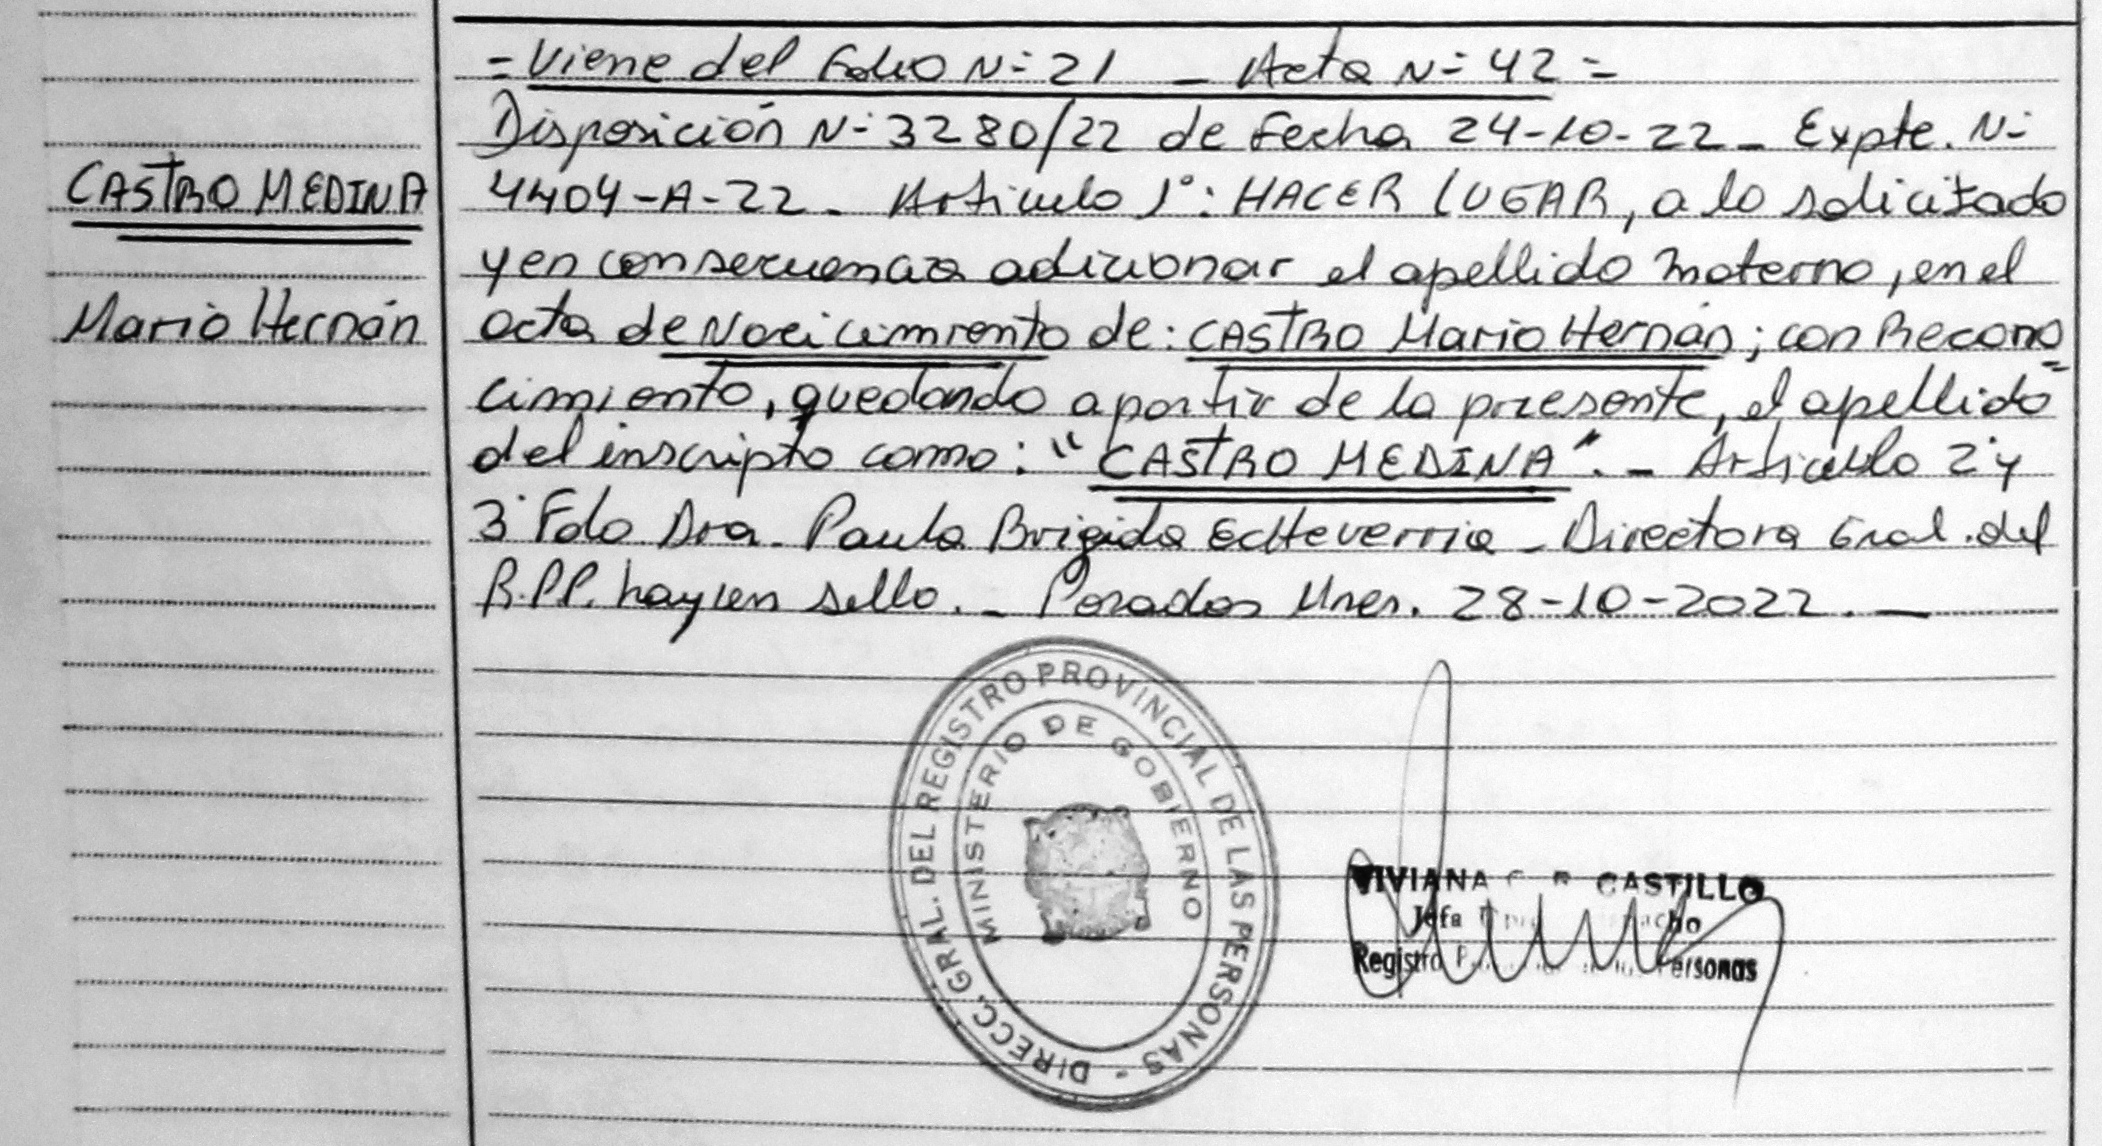 = Viene del Folio N- 21 _ Acta N- 42 =
Disposición N- 3280/22 de Fecha 24-10-22 _ Expte. N-
CASTRO MEDINA
4404-A-22 _ Artículo 1°: HACER LUGAR, a lo solicitado
y en consecuencia adicionar el apellido materno, en el
Mario Hernán
acta de Nacimiento de: CASTRO Mario Hernán; con Recono=
cimiento, quedando a partir de la presente, el apellido
del inscripto como: "CASTRO MEDINA". _ Artículo 2° y
3° Fdo Dra. Paula Brigida Echeverria _ Directora Gral. del
R.P.P. hay un sello. _ Posadas Mnes. 28-10-2022. _
DIRECC. GRAL. DEL REGISTRO PROVINCIAL DE LAS PERSONAS -
MINISTERIO DE GOBIERNO
VIVIANA CASTILLO
Jefa
Registro Personas